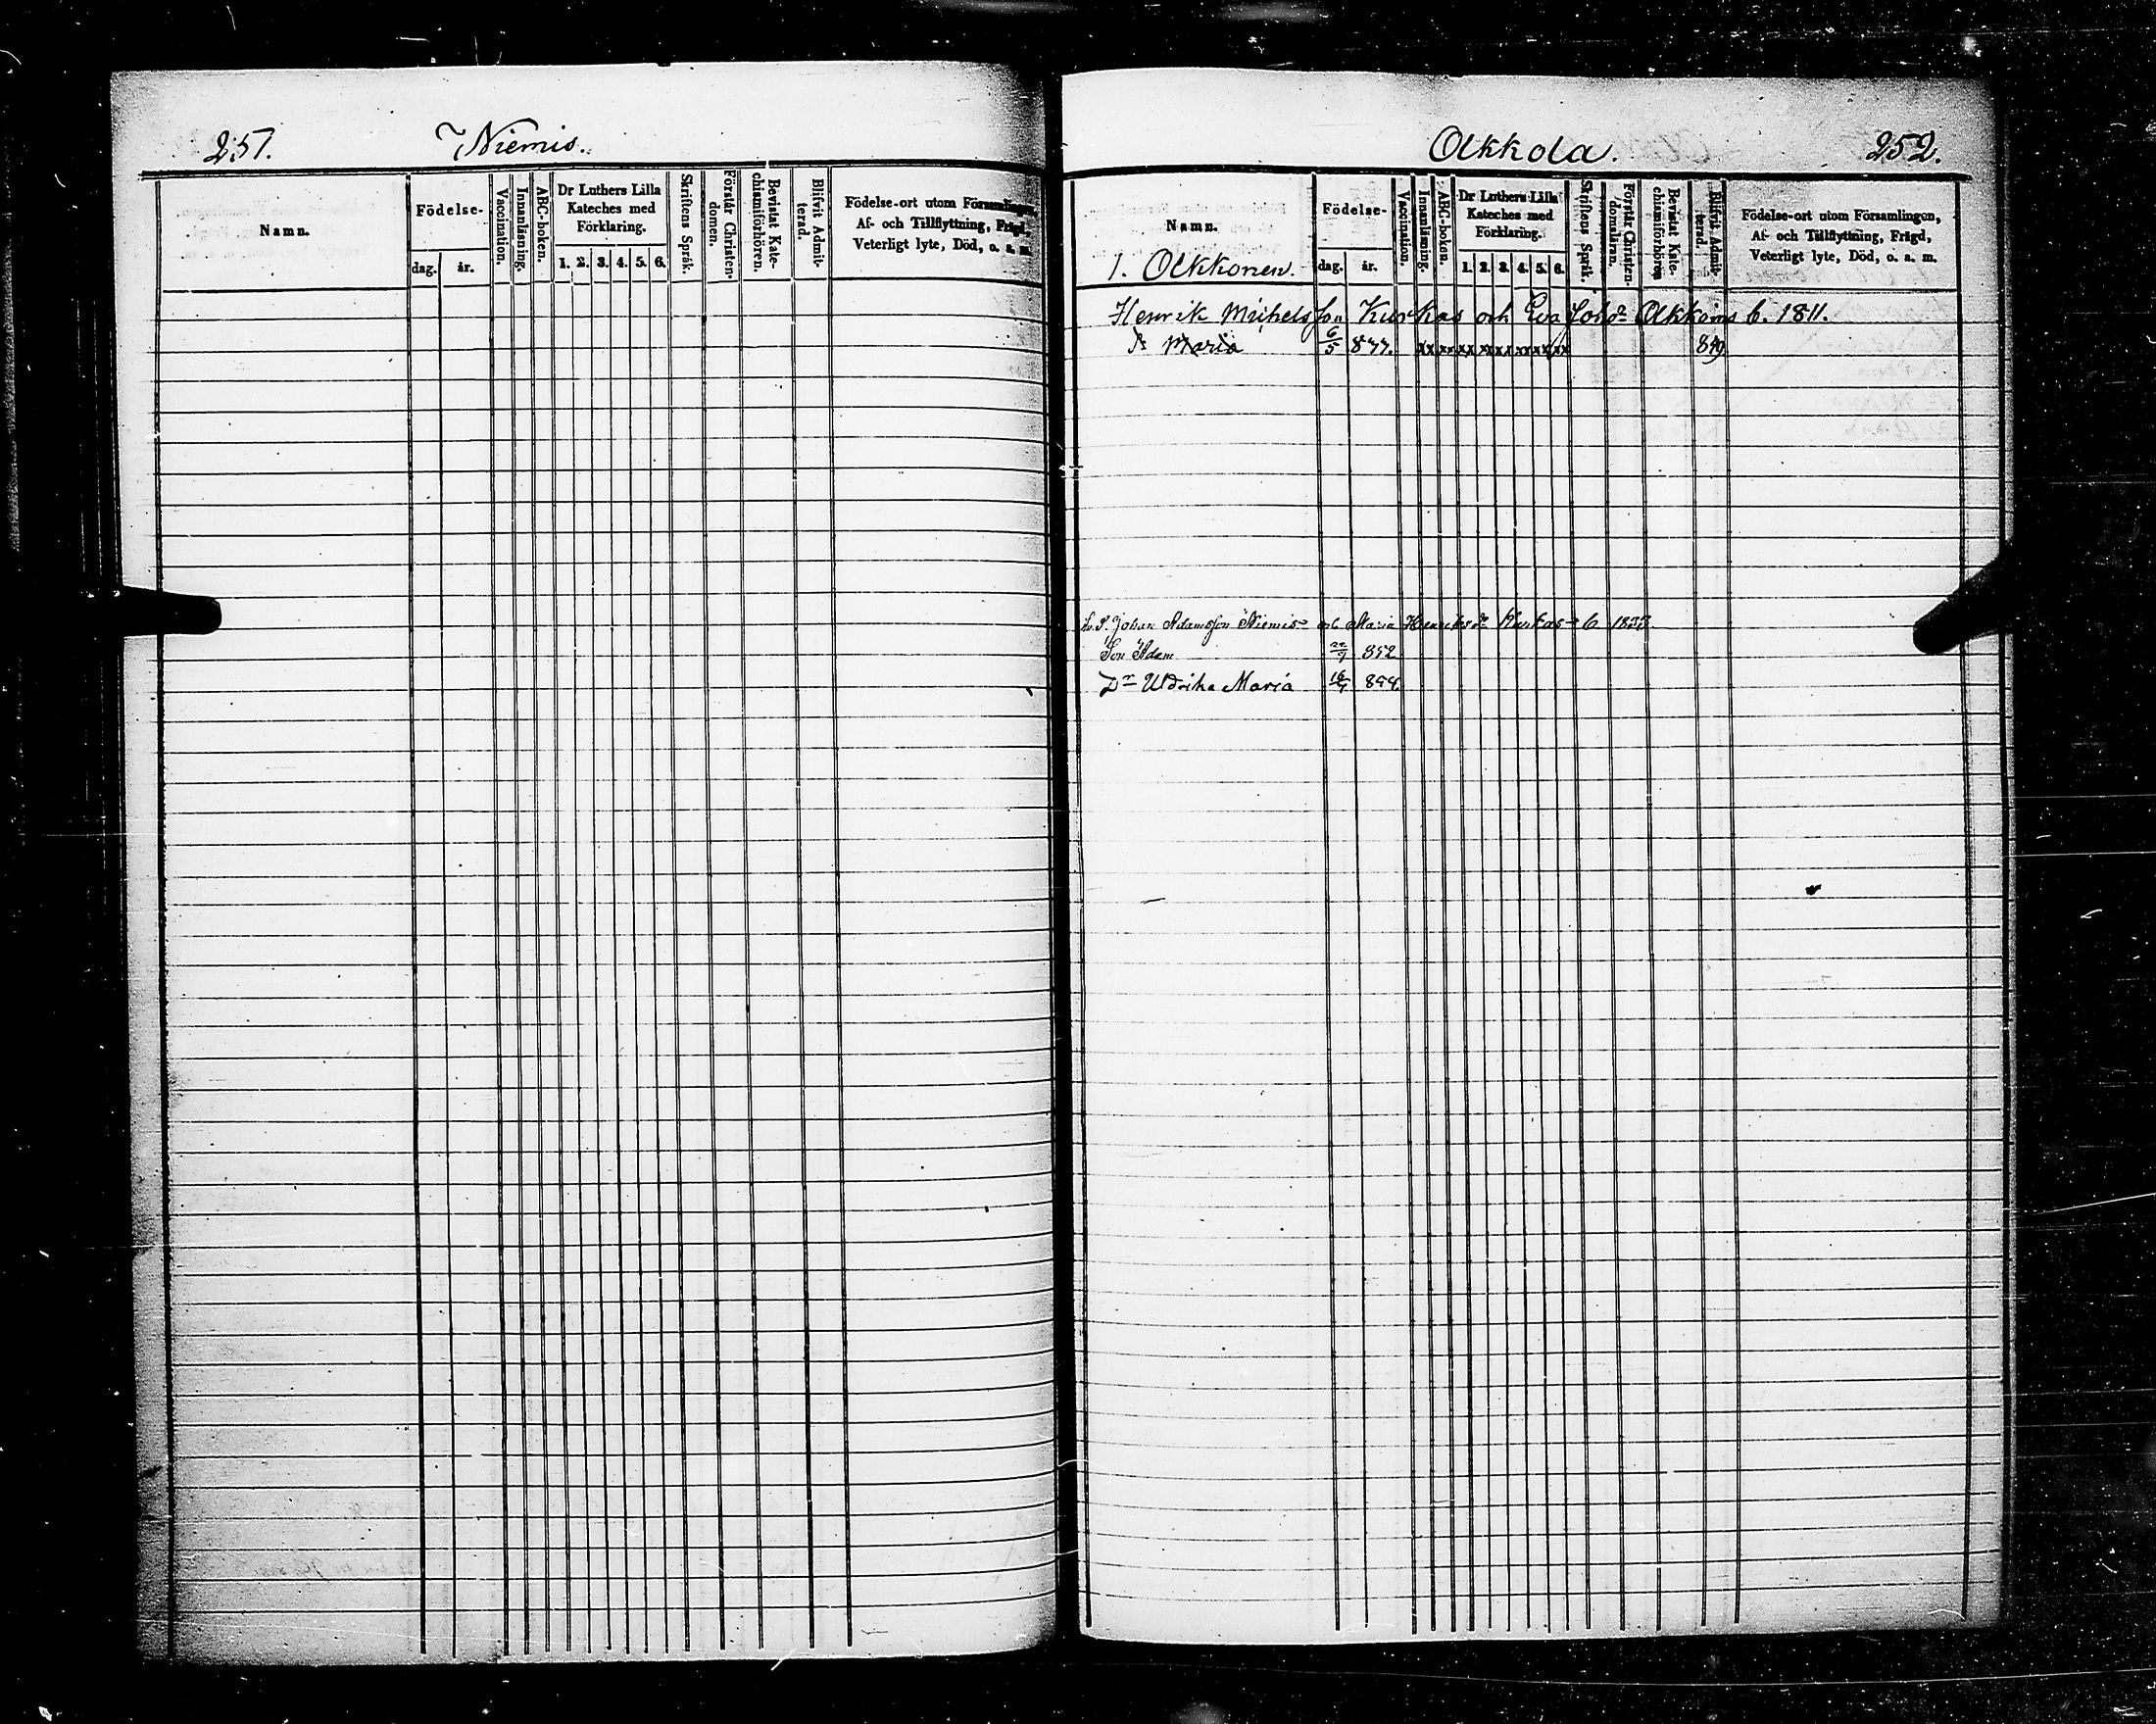 251. Niemis.
Namn.
Födelse-
dag. år.
Vaccination.
Innanläsning.
ABC-boken.
Dr Luthers Lilla
Kateches med
Förklaring.
1. 2. 3. 4. 5. 6.
Skriftens Språk.
Förstår Christen-
domen.
Bevistat Kate-
chismiförhören.
Blifvit Admit-
terad.
Födelse-ort utom Församlingen,
Af- och Tillflyttning, Frägd,
Veterligt lyte, Död, o. a. m.
Olkkola. 252.
Namn.
1. Olkkonen.
Födelse-
dag. år.
Vaccination.
Innanläsning.
ABC-boken.
Dr Luthers Lilla
Kateches med
Förklaring.
1. 2. 3. 4. 5. 6.
Skriftens Språk.
Förstår Christen-
domsläran.
Bevistat Kate-
chismiförhören
Blifvit Admit-
terad.
Födelse-ort utom Församlingen,
Af- och Tillflyttning, Frägd,
Veterligt lyte, Död, o. a. m.
Henrik Michelsson Kurkas och Eva Joh.dr b. 1811.
Maria 6/5 xx xx xx xx xx xx xx xx
Johan Adamsson Niemis och Maria Henriksdr Kurkas b
Son Adam 852
Dr Uldrika Maria